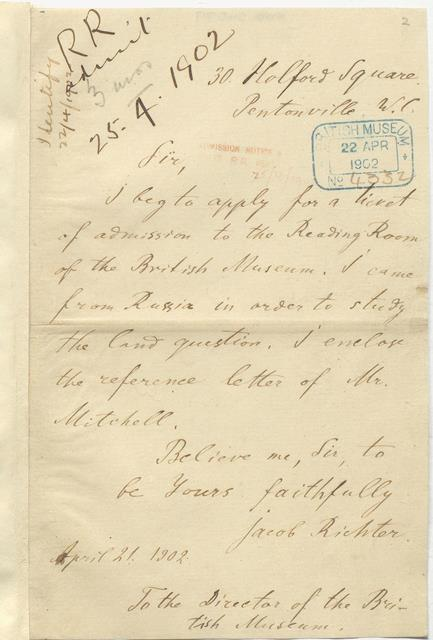 2
RR
admit
3 mos
25.4.1902
Identify
22/4/1902
30. Holford Square.
Pentonville. W.C.
BRITISH MUSEUM
22 APR
1902
No 4332
ADMISSION NOTICE
Sir,
I beg to apply for a ticket
of admission to the Reading Room
of the British Museum. I came
from Russia in order to study
the land question. I enclose
the reference letter of Mr.
Mitchell.
Believe me, Sir, to
be Yours faithfully
Jacob Richter.
April 21. 1902.
To the Director of the Bri-
tish Museum.